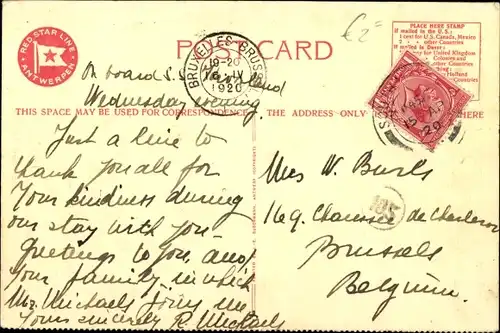 RED STAR LINE
ANTWERPEN
POST CARD
€2=
PLACE HERE STAMP
if mailed in the U.S.:
1 cent for U.S. Canada, Mexico
2 other Countries
if mailed in Dover:
for United Kingdom
Colonies and
other Countries
Holland
Countries
BRUXELLES BRUSSEL
19-20
1920
On board S.S. land
Wednesday evening.
THIS SPACE MAY BE USED FOR CORRESPONDENCE
THE ADDRESS ONLY HERE
Just a line to
thank you all for
your kindness during
our stay with you
Greetings to you and
your family, in which
Mr. Michaels joins me
Yours sincerely R. Michaels
Mrs W. Burls
169 Chaussée de Charleroi
Brussels
Belgium.